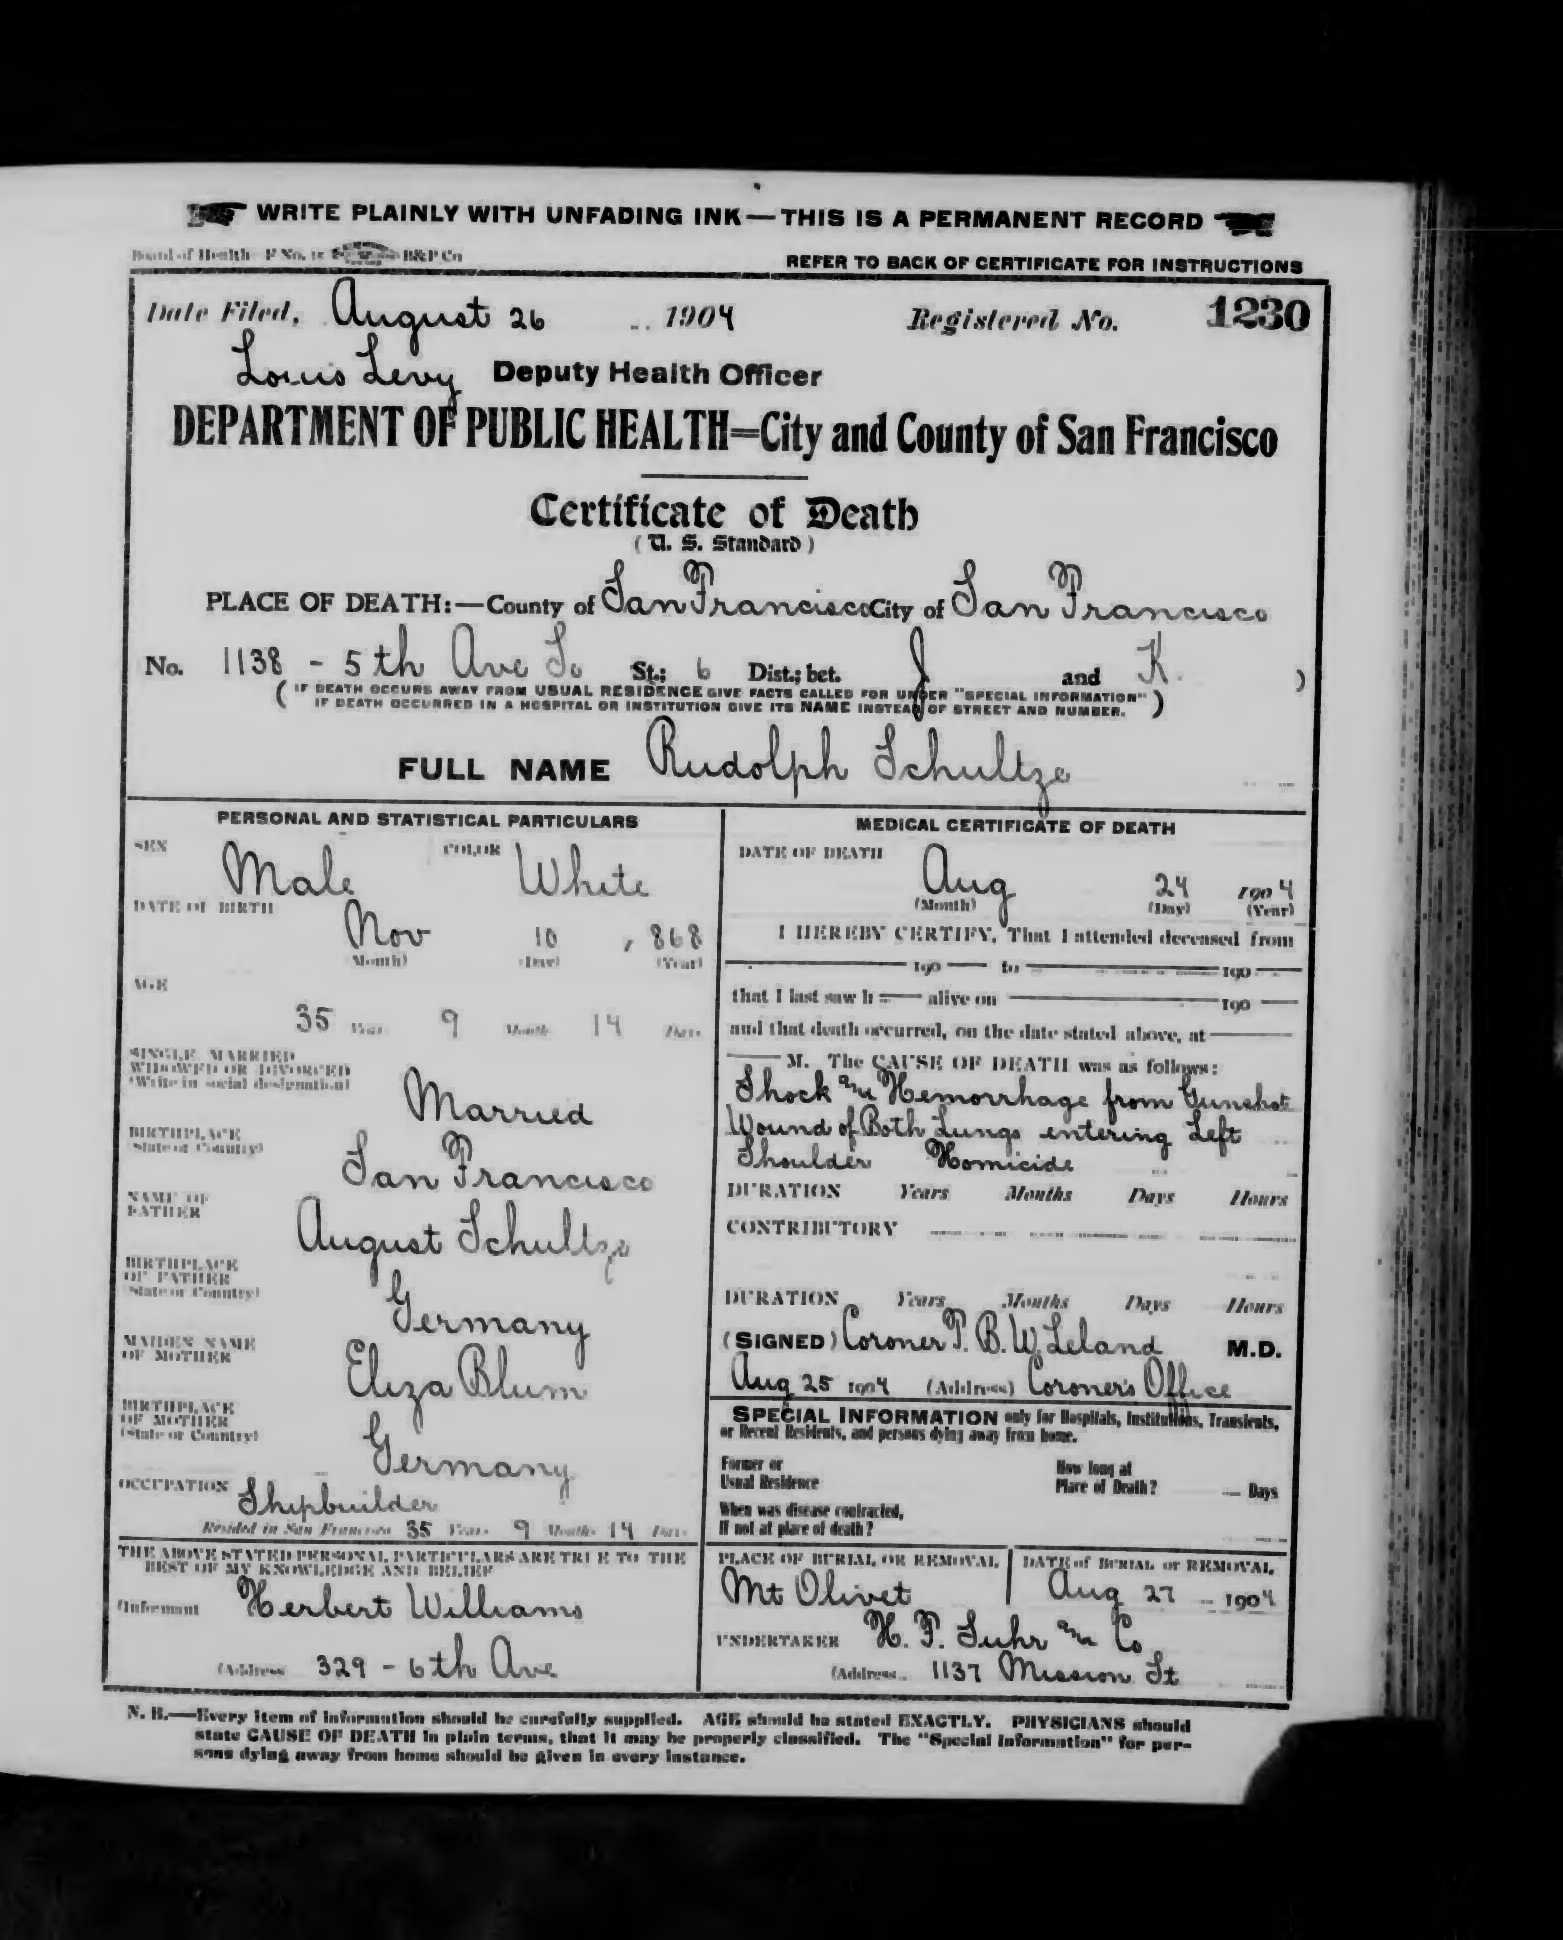 WRITE PLAINLY WITH UNFADING INK—THIS IS A PERMANENT RECORD
Board of Health F No. 15 B&P Co
REFER TO BACK OF CERTIFICATE FOR INSTRUCTIONS
Date Filed, August 26 1904 Registered No. 1230
Louis Levy Deputy Health Officer
DEPARTMENT OF PUBLIC HEALTH=City and County of San Francisco
Certificate of Death
(U. S. Standard)
PLACE OF DEATH:—County of San Francisco City of San Francisco
No. 1138 - 5th Ave So St.; 6 Dist.; bet. J and K. )
(IF DEATH OCCURS AWAY FROM USUAL RESIDENCE GIVE FACTS CALLED FOR UNDER "SPECIAL INFORMATION"
IF DEATH OCCURRED IN A HOSPITAL OR INSTITUTION GIVE ITS NAME INSTEAD OF STREET AND NUMBER.)
FULL NAME Rudolph Schultze
PERSONAL AND STATISTICAL PARTICULARS
SEX Male COLOR White
DATE OF BIRTH Nov 10 , 868
(Month) (Day) (Year)
AGE
35 Years 9 Months 14 Days
SINGLE, MARRIED
WIDOWED OR DIVORCED
(Write in social designation)
Married
BIRTHPLACE
(State or Country)
San Francisco
NAME OF
FATHER
August Schultze
BIRTHPLACE
OF FATHER
(State or Country)
Germany
MAIDEN NAME
OF MOTHER
Eliza Blum
BIRTHPLACE
OF MOTHER
(State or Country)
Germany
OCCUPATION Shipbuilder
Resided in San Francisco 35 Years 9 Months 14 Days
THE ABOVE STATED PERSONAL PARTICULARS ARE TRUE TO THE
BEST OF MY KNOWLEDGE AND BELIEF
(Informant Herbert Williams
(Address 329 - 6th Ave
MEDICAL CERTIFICATE OF DEATH
DATE OF DEATH
Aug 24 1904
(Month) (Day) (Year)
I HEREBY CERTIFY, That I attended deceased from
190 to 190
that I last saw h alive on 190
and that death occurred, on the date stated above, at
M. The CAUSE OF DEATH was as follows:
Shock and Hemorrhage from Gunshot
Wound of Both Lungs entering Left
Shoulder Homicide
DURATION Years Months Days Hours
CONTRIBUTORY
DURATION Years Months Days Hours
(SIGNED) Coroner T. B. W. Leland M.D.
Aug 25 1904 (Address) Coroner's Office
SPECIAL INFORMATION only for Hospitals, Institutions, Transients,
or Recent Residents, and persons dying away from home.
Former or
Usual Residence
How long at
Place of Death? Days
When was disease contracted,
If not at place of death?
PLACE OF BURIAL OR REMOVAL
Mt Olivet
DATE of BURIAL or REMOVAL
Aug 27 1904
UNDERTAKER H. F. Suhr and Co
(Address 1137 Mission St
N. B.—Every item of information should be carefully supplied. AGE should be stated EXACTLY. PHYSICIANS should
state CAUSE OF DEATH in plain terms, that it may be properly classified. The "Special Information" for per-
sons dying away from home should be given in every instance.